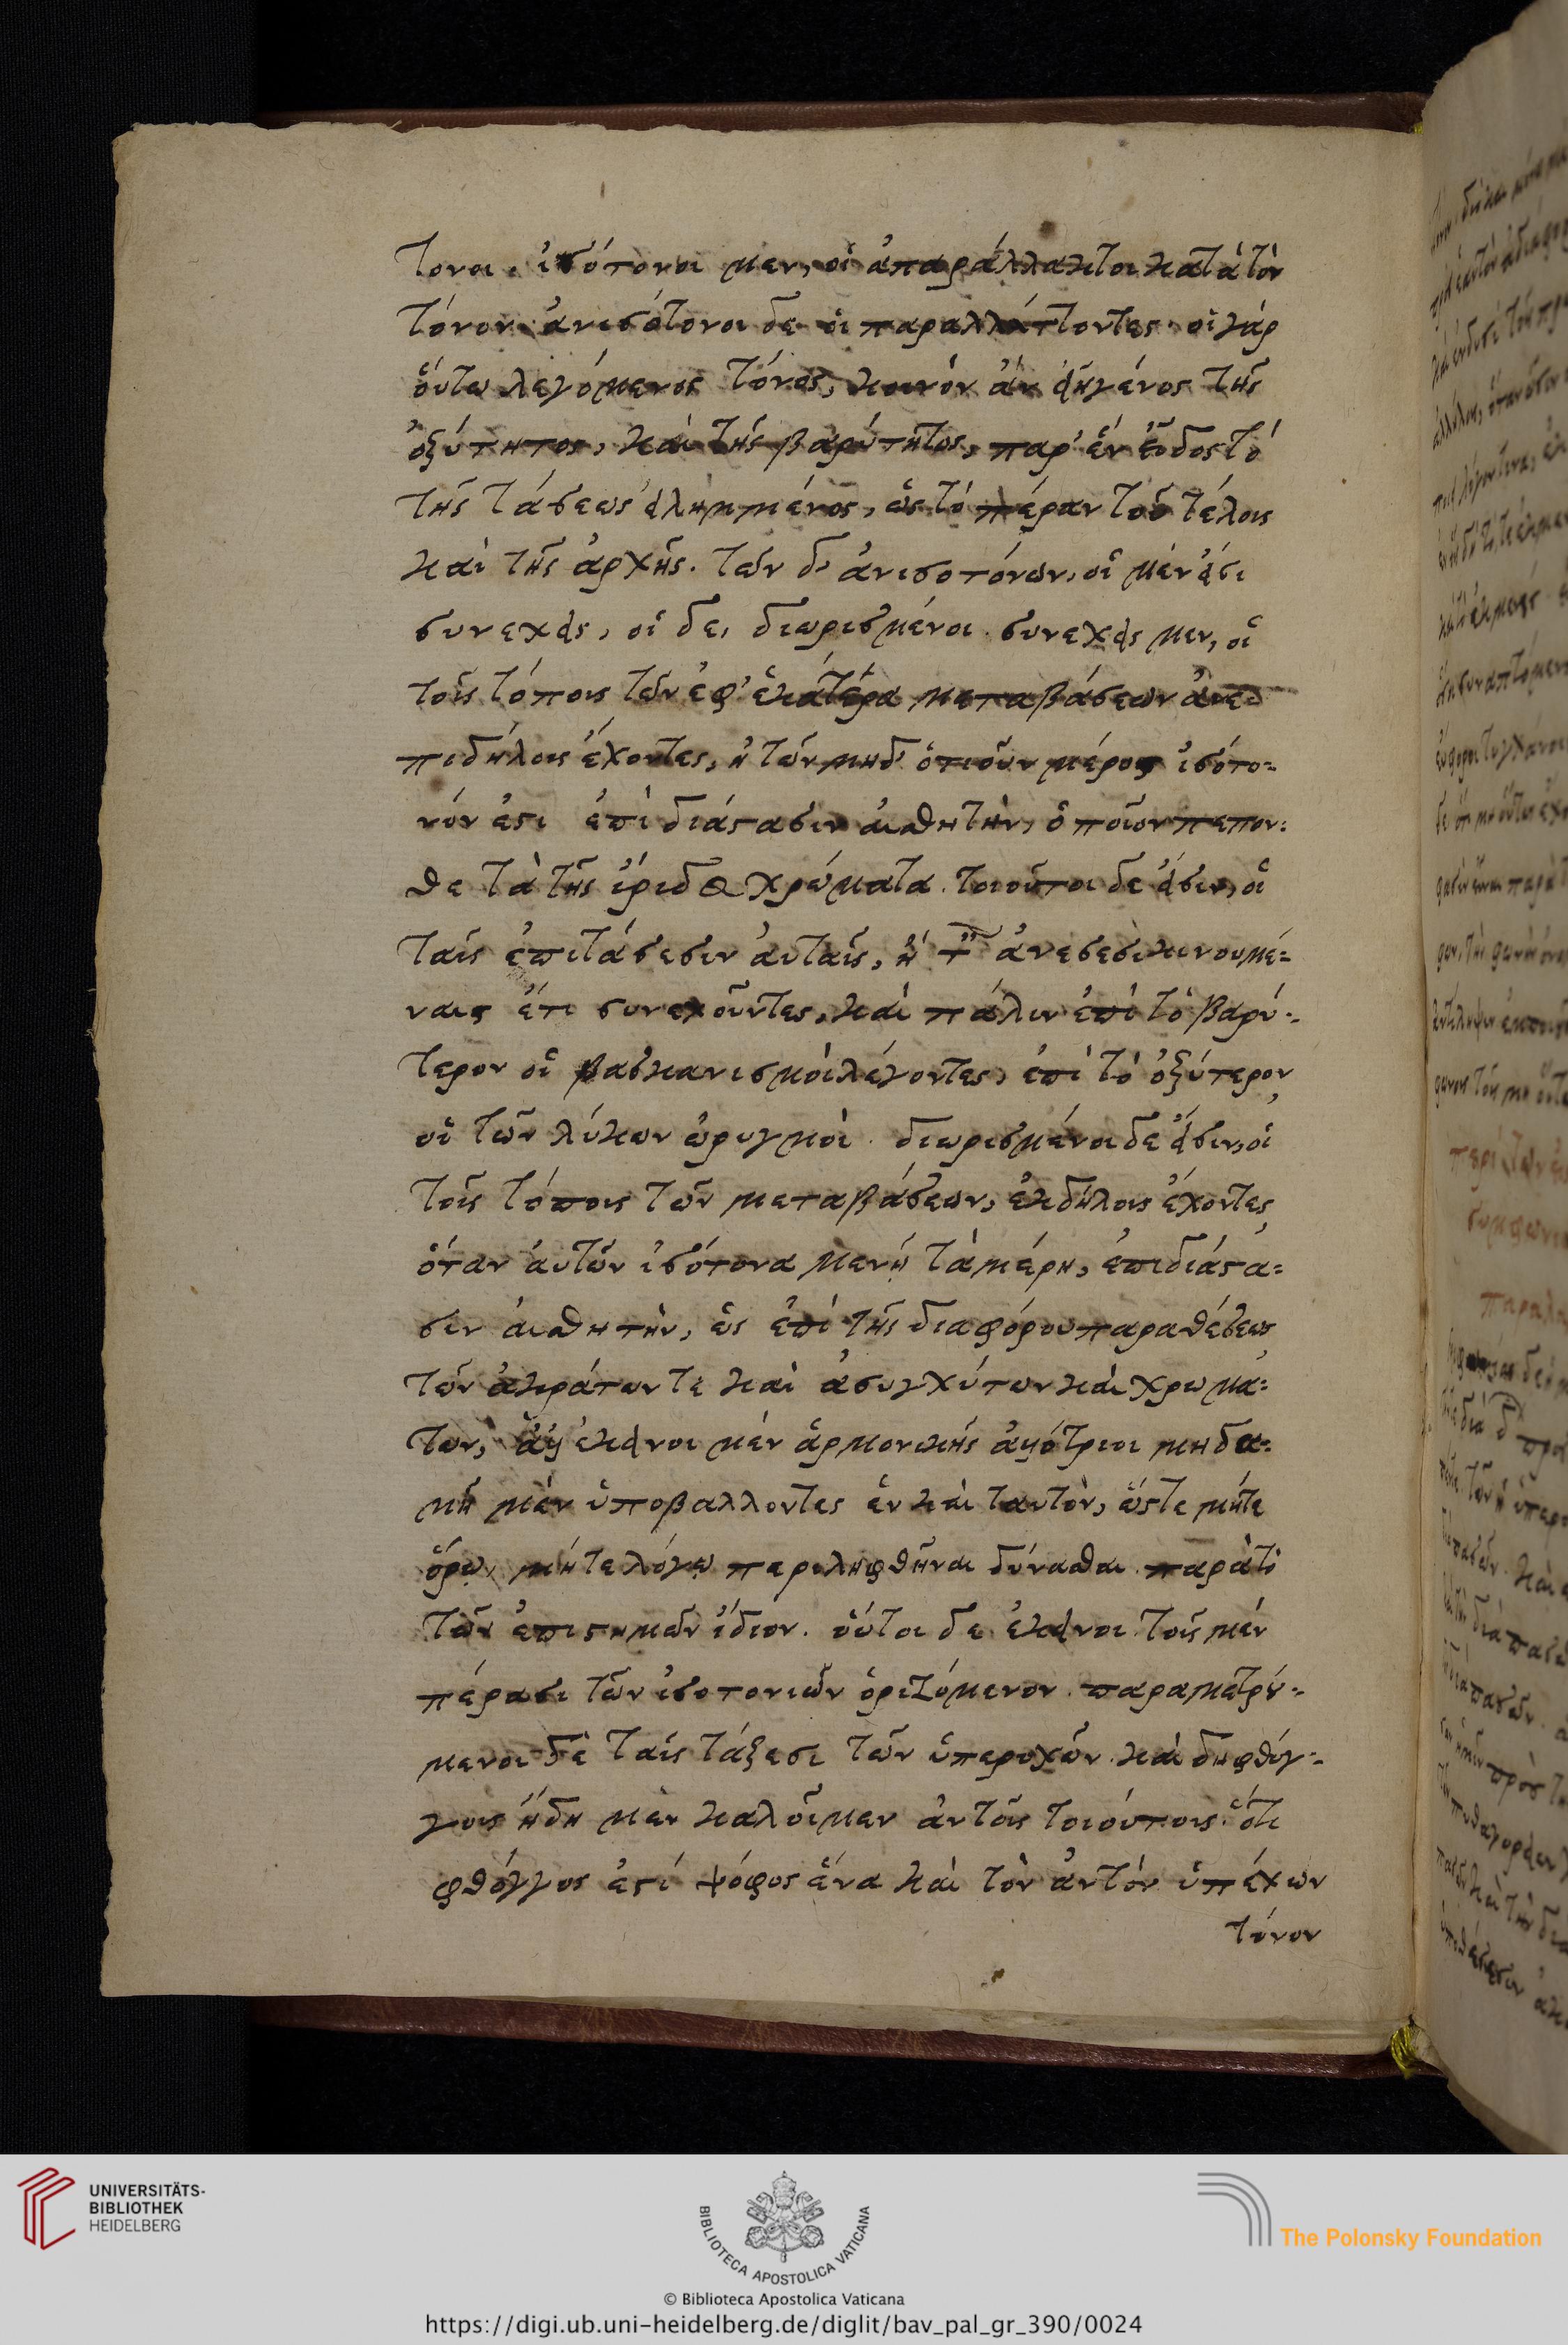 τονοι. ἰσότονοι μεν, οἱ ἀπαράλλακτοι κατὰ τὸν
τόνον. ἀνισότονοι δε οἱ παραλλάττοντες. οἱ γάρ
ὅυτω λεγόμενος τόνος, κοινὸν ἀν εἴη γένος τῆς
ὀξύτητος, καὶ τῆς βαρύτητος, παρ' ἑν εἶδος τὸ
τῆς τάσεως εἰλημμένος, ὡς τὸ πέραν τοῦ τέλους
καὶ τῆς ἀρχῆς. τῶν δ' ἀνισοτόνων, οἱ μέν εἰσι
συνεχεῖς, οἱ δε, διωρισμένοι. συνεχεῖς μεν, οἱ
τοὺς τόπους τῶν ἐφ' ἑκάτερα μεταβάσεων ἀνε
πιδήλους ἔχοντες, ἢ τῶν μηδ' ὁτιοῦν μέρος ἰσότο-
νόν ἐστι ἐπὶ διάστασιν αἰσθητὴν, ὁποῖον πεπον-
θε τὰ τῆς ἴριδος χρώματα. τοιοῦτοι δε εἰσιν, οἱ
ταῖς ἐπιτάσεσιν ἀυταῖς, ἢ ἀνεσεσι κινουμέ-
ναις ἔτι συνεχοῦντες, καὶ πάλιν ἐπὶ τὸ βαρύ-
τερον οἱ βασκανισμοὶ λέγοντες, ἐπὶ τὸ ὀξύτερον,
οἱ τῶν λύκων ὠρυγμοὶ. διωρισμένοι δε εἰσιν, οἱ
τοὺς τόπους τῶν μεταβάσεων, ἐκδήλους ἔχοντες,
ὁταν ἀυτῶν ἰσότονα μενῃ τὰ μέρη, ἐπι διάστα-
σιν αἰσθητὴν, ὡς ἐπὶ τῆς διαφόρου παραθέσεως
τῶν ἀκράτων τε καὶ ἀσυγχύτων καὶ χρωμά-
των, ἀλλ' ἐκεῖνοι μέν ἁρμονικῆς ἀλλότριοι μηδα-
μῆ μὲν ὑποβαλλοντες ἑν καὶ ταυτὸν, ὥστε μήτε
ὅρῳ, μήτε λόγῳ περιληφθῆναι δύνασθαι. παρὰ τὸ
τῶν ἐπιστημῶν ἴδιον. οὗτοι δε ἐκεῖνοι τοῖς μέν
πέρασι τῶν ἰσοτονιῶν ὁριζόμενον. παραμετρού-
μενοι δὲ ταῖς τάξεσι τῶν ὑπεροχῶν. καὶ δη φθόγ-
γους ἤδη μεν καλοῖμεν ἀυτοῖς τοιούτοις. ὁτι
φθόγγος ἐστί ψόφος ἕνα καὶ τὸν ἀυτὸν ὑπέχων
τόνον
UNIVERSITÄTS-
BIBLIOTHEK
HEIDELBERG
BIBLIOTECA APOSTOLICA VATICANA
The Polonsky Foundation
© Biblioteca Apostolica Vaticana
https://digi.ub.uni-heidelberg.de/diglit/bav_pal_gr_390/0024